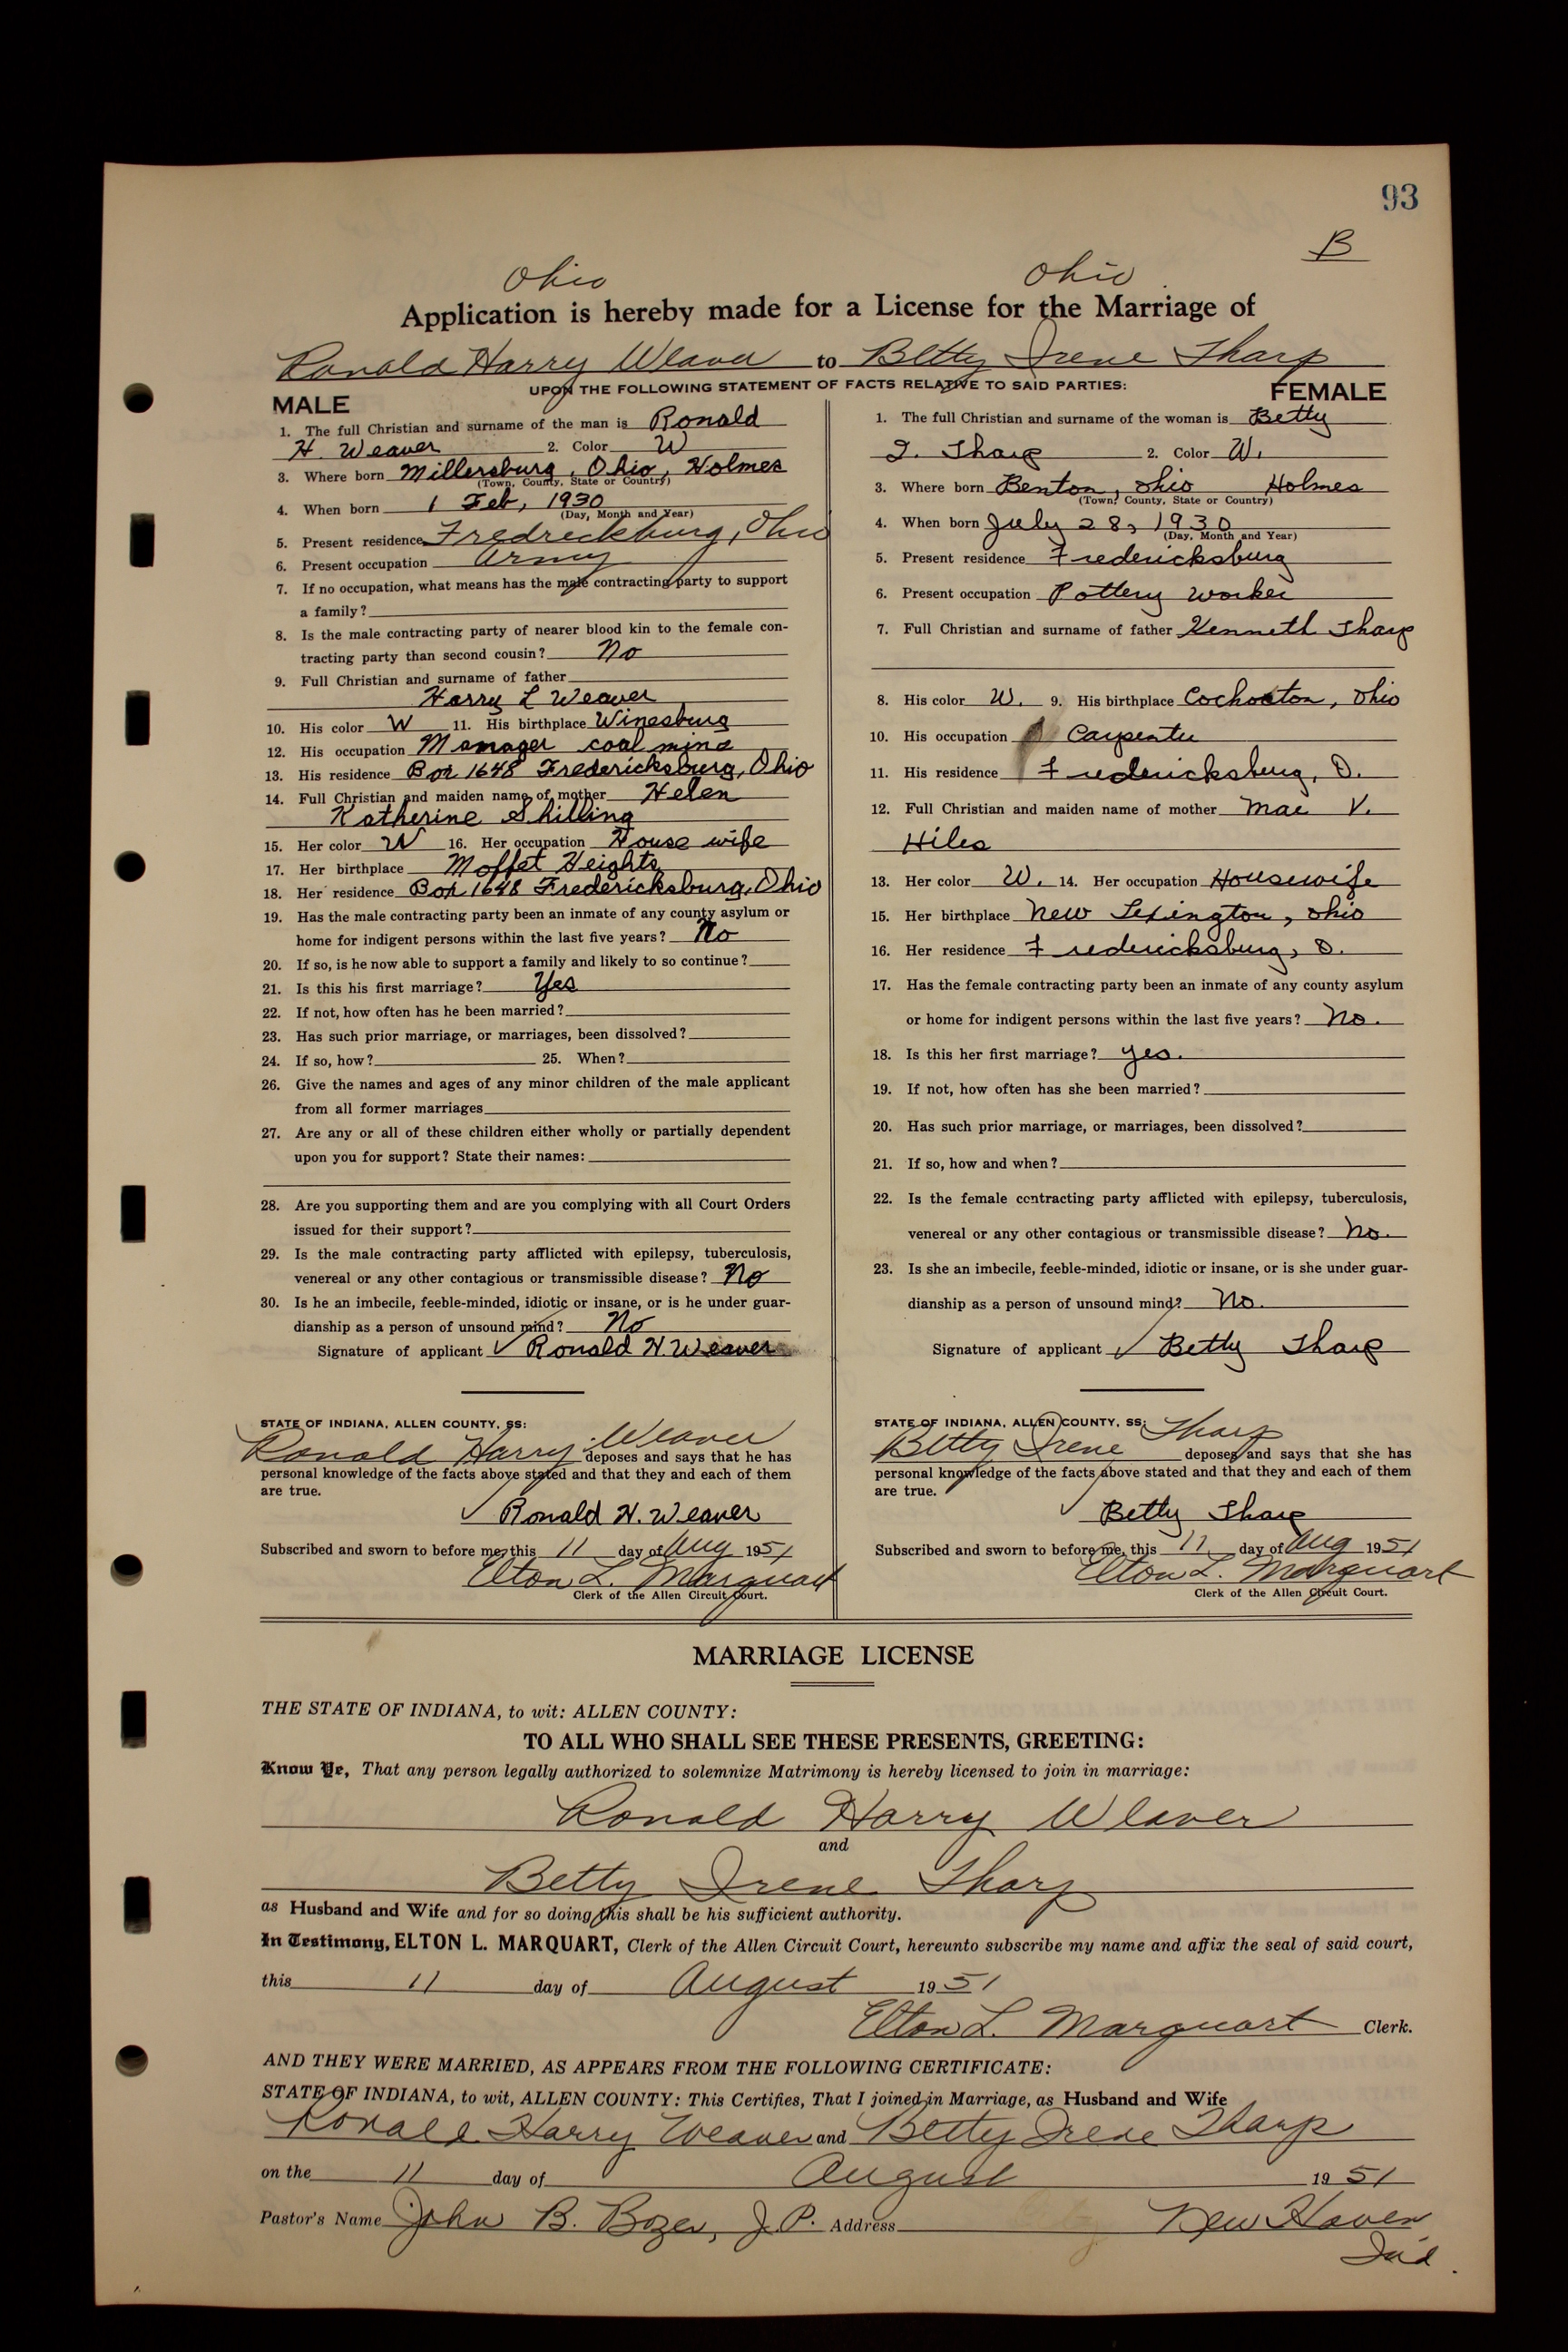 93
B
Ohio Ohio
Application is hereby made for a License for the Marriage of
Ronald Harry Weaver to Betty Irene Tharp
UPON THE FOLLOWING STATEMENT OF FACTS RELATIVE TO SAID PARTIES:
MALE
1. The full Christian and surname of the man is Ronald
H. Weaver 2. Color W
3. Where born Millersburg, Ohio, Holmes
(Town, County, State or Country)
4. When born 1 Feb, 1930
(Day, Month and Year)
5. Present residence Fredreckburg, Ohio
6. Present occupation Army
7. If no occupation, what means has the male contracting party to support
a family?
8. Is the male contracting party of nearer blood kin to the female con-
tracting party than second cousin? No
9. Full Christian and surname of father
Harry L Weaver
10. His color W 11. His birthplace Winesburg
12. His occupation Manager coal mine
13. His residence Box 1648 Fredericksburg, Ohio
14. Full Christian and maiden name of mother Helen
Katherine Shilling
15. Her color W 16. Her occupation House wife
17. Her birthplace Moffet Heights
18. Her residence Box 1648 Fredericksburg, Ohio
19. Has the male contracting party been an inmate of any county asylum or
home for indigent persons within the last five years? No
20. If so, is he now able to support a family and likely to so continue?
21. Is this his first marriage? Yes
22. If not, how often has he been married?
23. Has such prior marriage, or marriages, been dissolved?
24. If so, how? 25. When?
26. Give the names and ages of any minor children of the male applicant
from all former marriages
27. Are any or all of these children either wholly or partially dependent
upon you for support? State their names:
28. Are you supporting them and are you complying with all Court Orders
issued for their support?
29. Is the male contracting party afflicted with epilepsy, tuberculosis,
venereal or any other contagious or transmissible disease? No
30. Is he an imbecile, feeble-minded, idiotic or insane, or is he under guar-
dianship as a person of unsound mind? No
Signature of applicant ✓ Ronald H. Weaver
STATE OF INDIANA, ALLEN COUNTY, SS:
Ronald Harry Weaver deposes and says that he has
personal knowledge of the facts above stated and that they and each of them
are true.
✓ Ronald H. Weaver
Subscribed and sworn to before me, this 11 day of Aug 1951
Elton L. Marquart
Clerk of the Allen Circuit Court.
FEMALE
1. The full Christian and surname of the woman is Betty
I. Tharp 2. Color W.
3. Where born Benton, Ohio Holmes
(Town, County, State or Country)
4. When born July 28, 1930
(Day, Month and Year)
5. Present residence Fredericksburg
6. Present occupation Pottery worker
7. Full Christian and surname of father Kenneth Tharp
8. His color W. 9. His birthplace Cochocton, Ohio
10. His occupation Carpenter
11. His residence Fredericksburg, O.
12. Full Christian and maiden name of mother Mae V.
Hiles
13. Her color W. 14. Her occupation Housewife
15. Her birthplace New Lexington, Ohio
16. Her residence Fredericksburg, O.
17. Has the female contracting party been an inmate of any county asylum
or home for indigent persons within the last five years? No.
18. Is this her first marriage? yes.
19. If not, how often has she been married?
20. Has such prior marriage, or marriages, been dissolved?
21. If so, how and when?
22. Is the female contracting party afflicted with epilepsy, tuberculosis,
venereal or any other contagious or transmissible disease? No.
23. Is she an imbecile, feeble-minded, idiotic or insane, or is she under guar-
dianship as a person of unsound mind? No.
Signature of applicant ✓ Betty Tharp
STATE OF INDIANA, ALLEN COUNTY, SS:
Betty Irene Tharp deposes and says that she has
personal knowledge of the facts above stated and that they and each of them
are true.
✓ Betty Tharp
Subscribed and sworn to before me, this 11 day of Aug 1951
Elton L. Marquart
Clerk of the Allen Circuit Court.
MARRIAGE LICENSE
THE STATE OF INDIANA, to wit: ALLEN COUNTY:
TO ALL WHO SHALL SEE THESE PRESENTS, GREETING:
Know Ye, That any person legally authorized to solemnize Matrimony is hereby licensed to join in marriage:
Ronald Harry Weaver
and
Betty Irene Tharp
as Husband and Wife and for so doing this shall be his sufficient authority.
In Testimony, ELTON L. MARQUART, Clerk of the Allen Circuit Court, hereunto subscribe my name and affix the seal of said court,
this 11 day of August 1951
Elton L. Marquart Clerk.
AND THEY WERE MARRIED, AS APPEARS FROM THE FOLLOWING CERTIFICATE:
STATE OF INDIANA, to wit, ALLEN COUNTY: This Certifies, That I joined in Marriage, as Husband and Wife
Ronald Harry Weaver and Betty Irene Tharp
on the 11 day of August 1951
Pastor's Name John B. Bozer, J.P. Address New Haven
Ind.